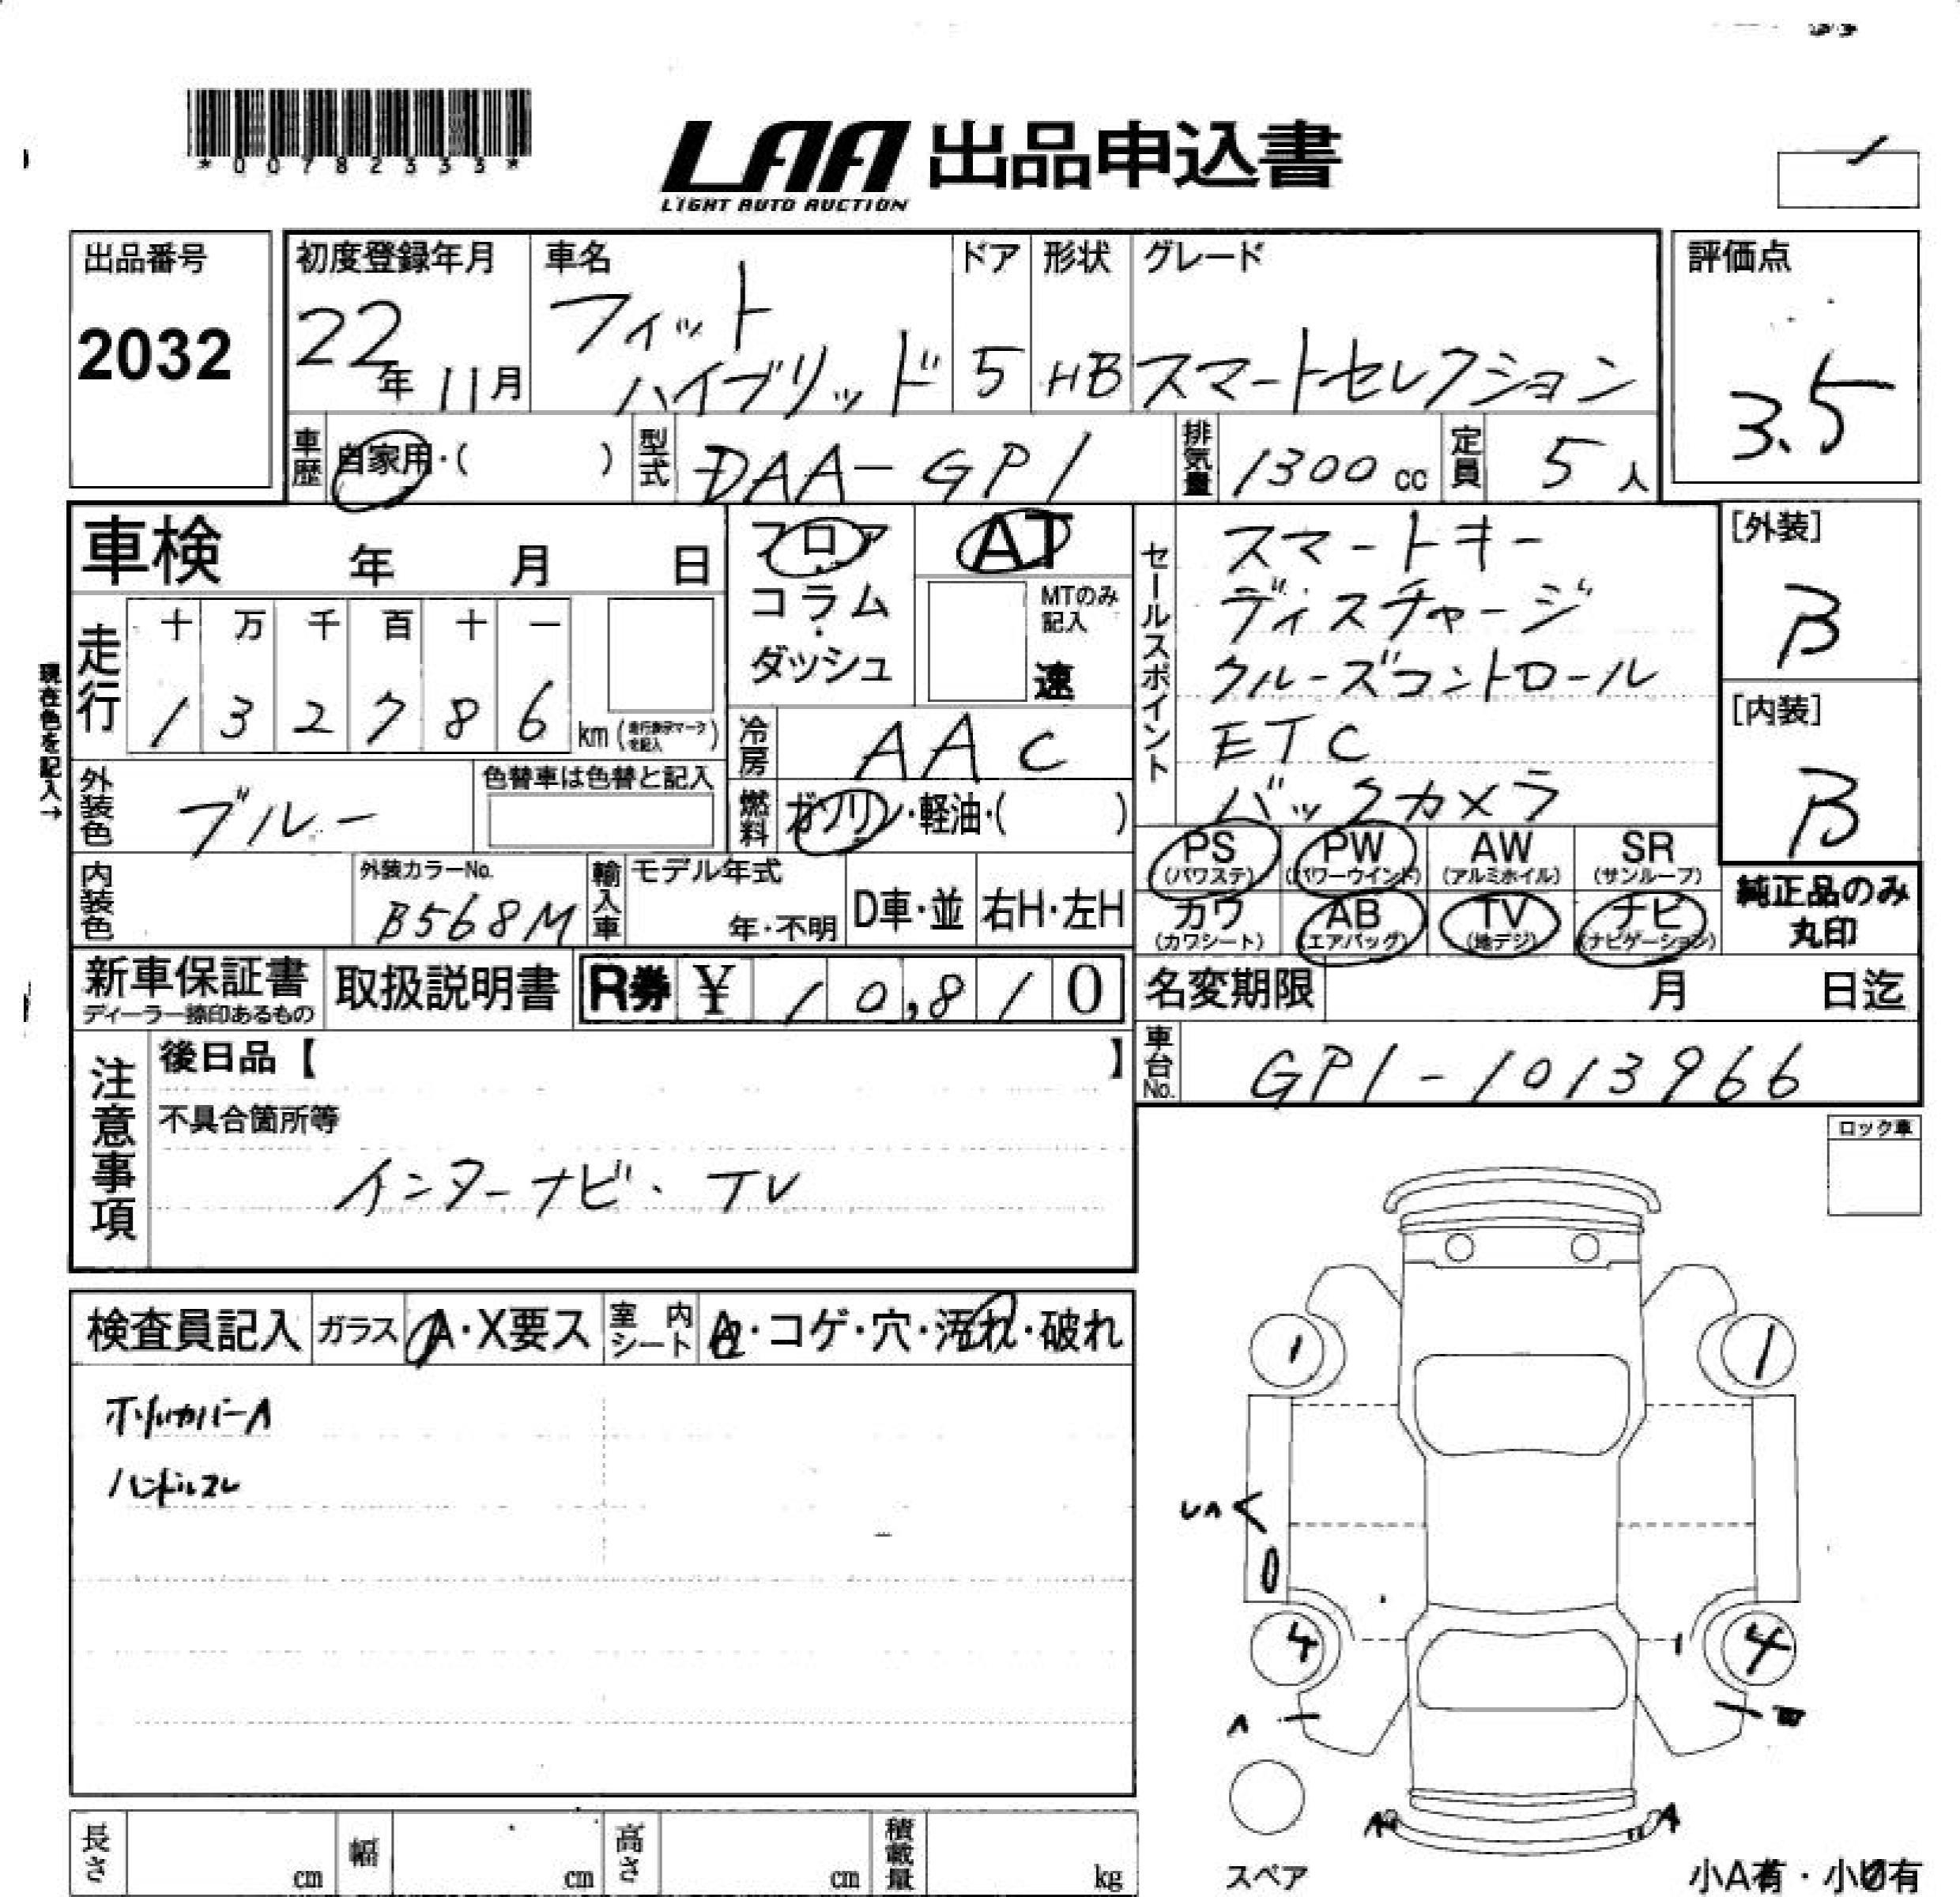 *00782333*
LAA 出品申込書
LIGHT AUTO AUCTION
出品番号
2032
初度登録年月
22年 11月
車名
フィット
ハイブリッド
ドア
5
形状
HB
グレード
スマートセレクション
評価点
3.5
車歴 自家用・( )
型式 DAA-GP1
排気量 1300 cc
定員 5人
車検 年 月 日
フロア
コラム
・
ダッシュ
AT
MTのみ
記入
速
セールスポイント
スマートキー
ディスチャージ
クルーズコントロール
ETC
バックカメラ
[外装]
B
[内装]
B
現在色を記入→
走行
十 万 千 百 十 一
1 3 2 7 8 6 km (走行表示マークを記入)
冷房 AAC
外装色 ブルー
色替車は色替と記入
燃料 ガソリン・軽油・( )
PS (パワステ)
PW (パワーウインド)
AW (アルミホイル)
SR (サンルーフ)
カワ (カワシート)
AB (エアバッグ)
TV (地デジ)
ナビ (ナビゲーション)
純正品のみ
丸印
内装色
外装カラーNo.
B568M
輸入車
モデル年式
年・不明
D車・並
右H・左H
新車保証書
ディーラー捺印あるもの
取扱説明書
R券 ¥ 10,810
名変期限 月 日迄
車台No. GP1-1013966
注意事項
後日品【 】
不具合箇所等
インターナビ・TV
ロック車
検査員記入
ガラス A・X要ス
室内シート A・コゲ・穴・汚れ・破れ
ホイルカバーA
ハンドルスレ
1 1
UA
4 4
A
A A
スペア
小A有・小U有
長さ cm
幅 cm
高さ cm
積載量 kg